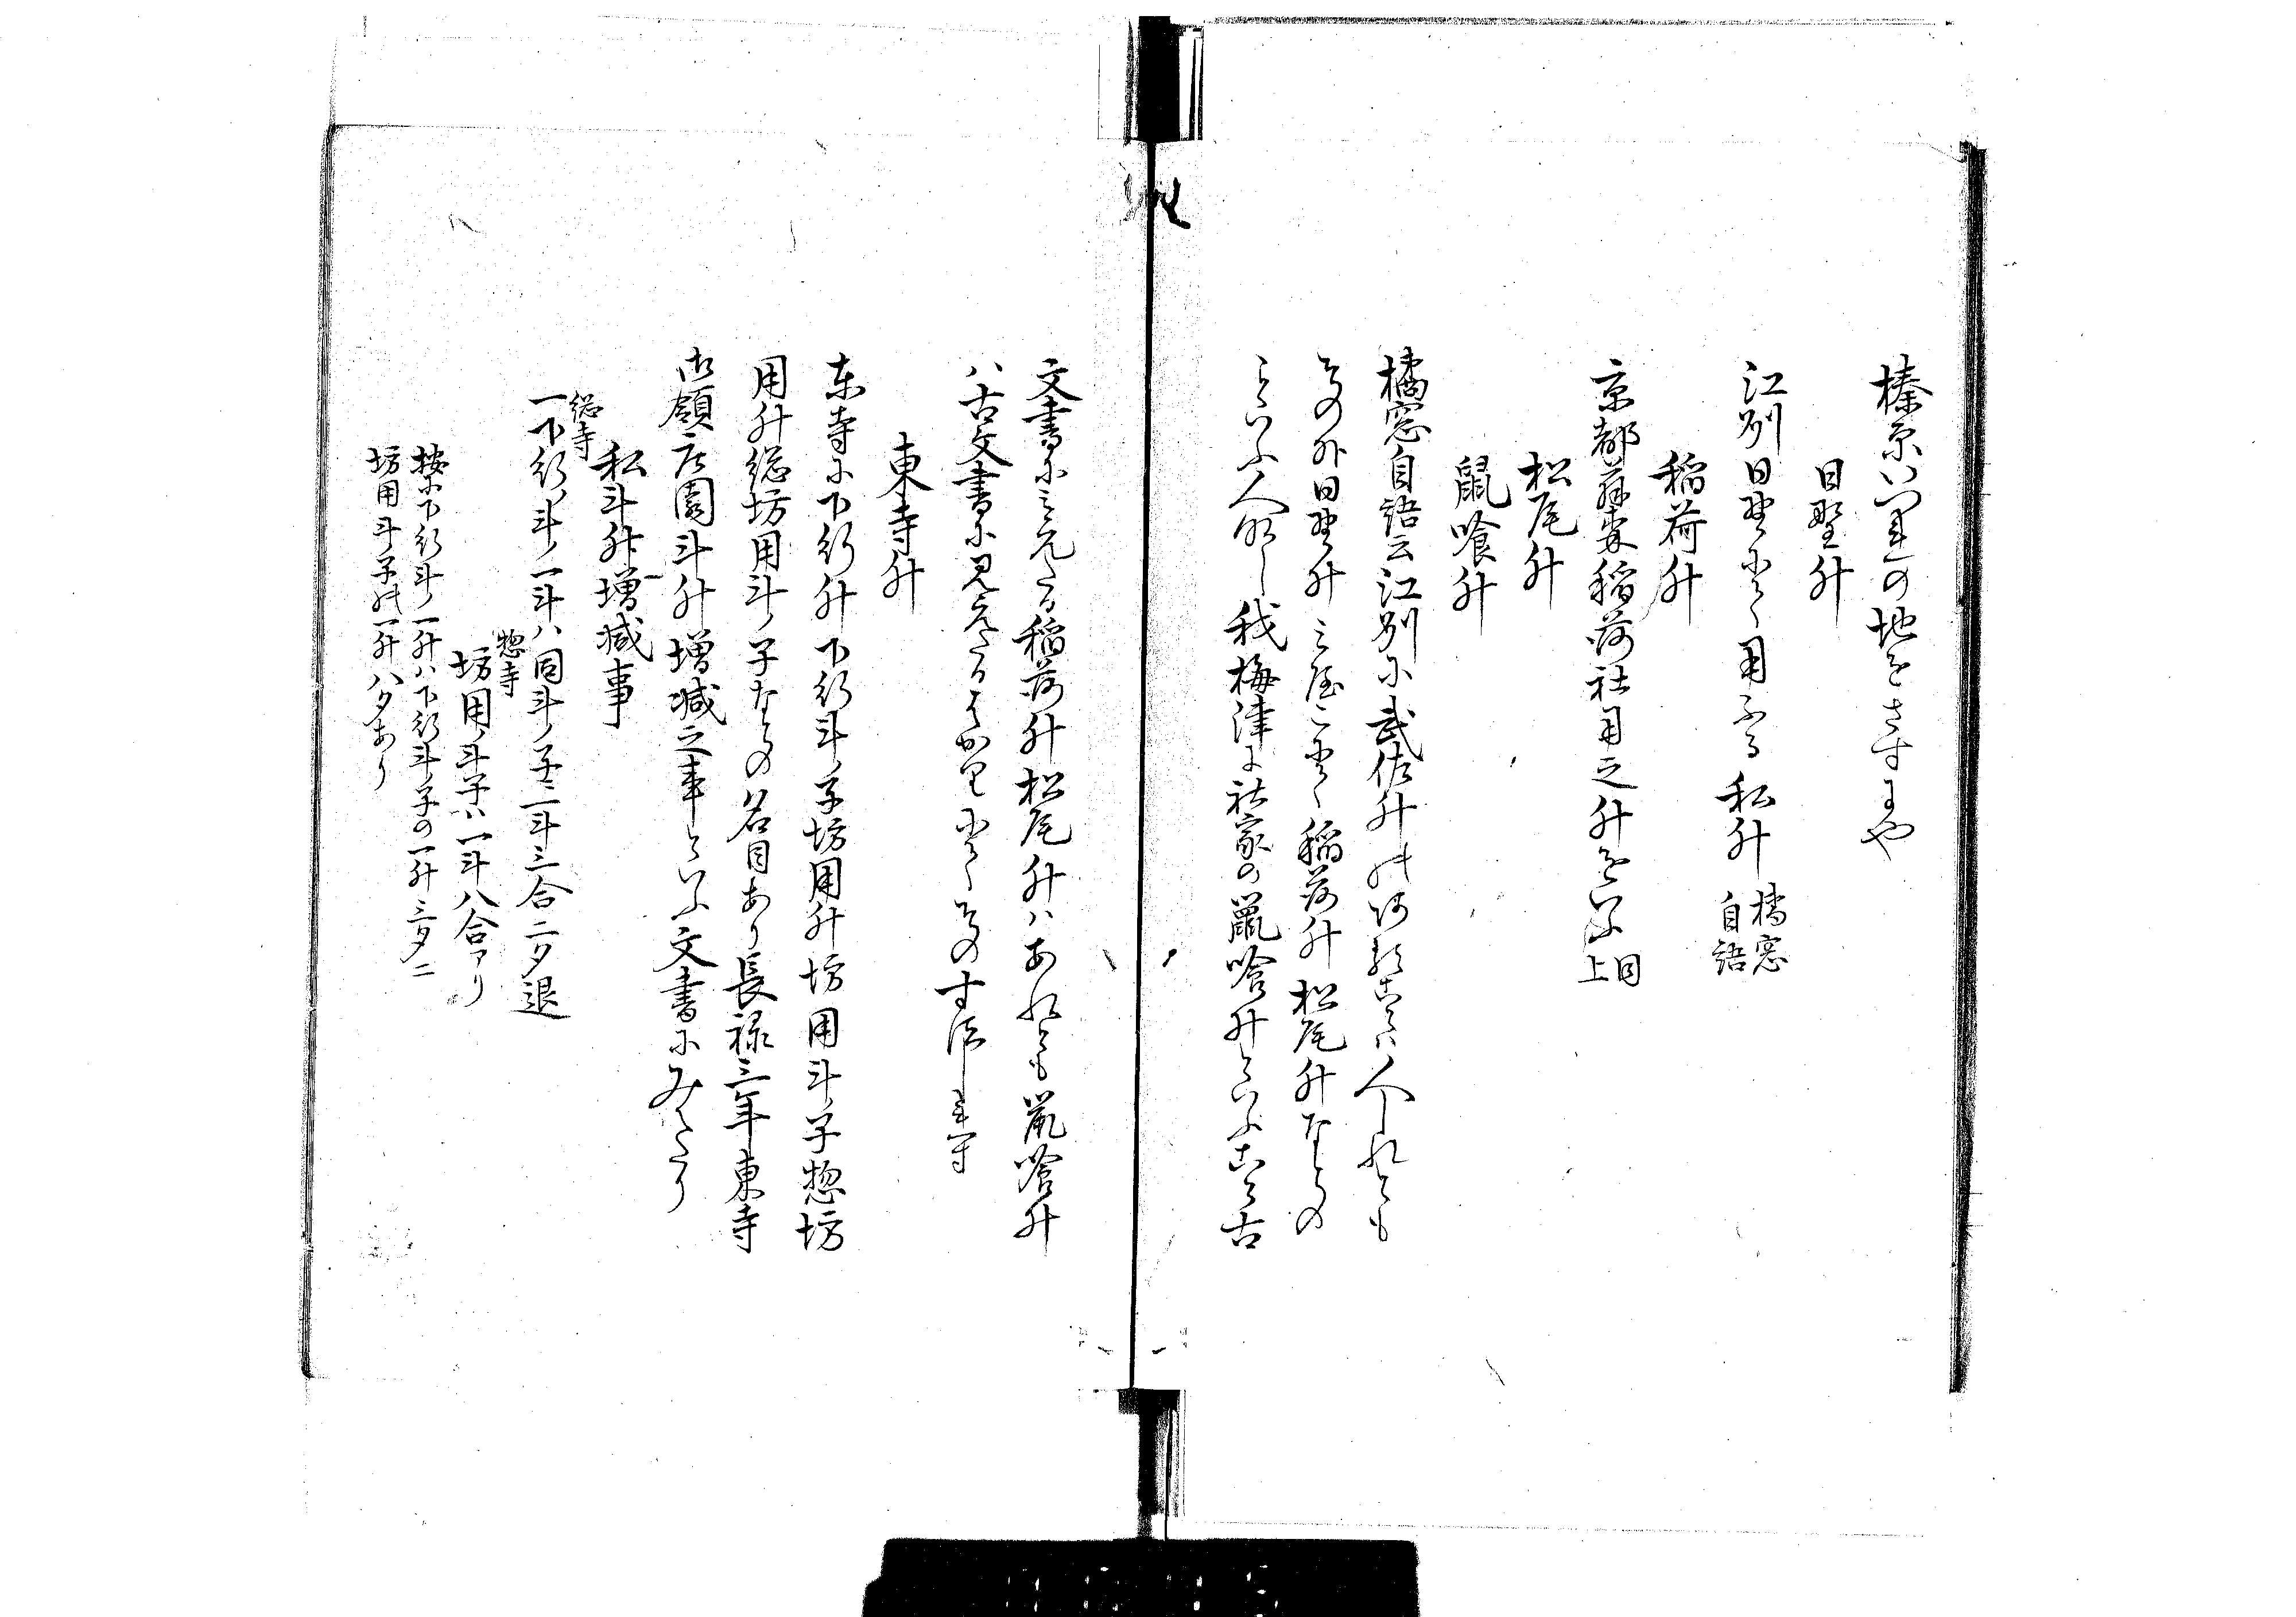 榛原いつれの地をさすにや
日野升
江州日野にて用ふる私升 橘窓自語
稲荷升
京都藤森稲荷社用之升をいふ 同上
松尾升
鼠喰升
橘窓自語云江州に武佐升の沙汰ある人しれとも
その外日野升 にて稲荷升松尾升なとの
といふ人なし我梅津は社家の鼠喰升といふこと古
文書にみえたる稲荷升松尾升ハあれとも鼠喰升
ハ古文書に見えたるはかりにてその寸法
東寺升
東寺に下行升下行斗ノ子坊用升坊用斗ノ子惣坊
用升総坊用斗ノ子なとの名目あり長禄三年東寺
御領庄園斗升増減之事といふ文書にみえたり
私斗升増減事
総寺
一下行ノ斗ノ一斗ハ同斗ノ子ニ一斗三合二夕退
惣寺
坊用ノ斗子ハ一斗八合アリ
按に下行斗ノ一升ハ下行斗ノ子の一升三夕二
坊用斗ノ子の一升八夕あり